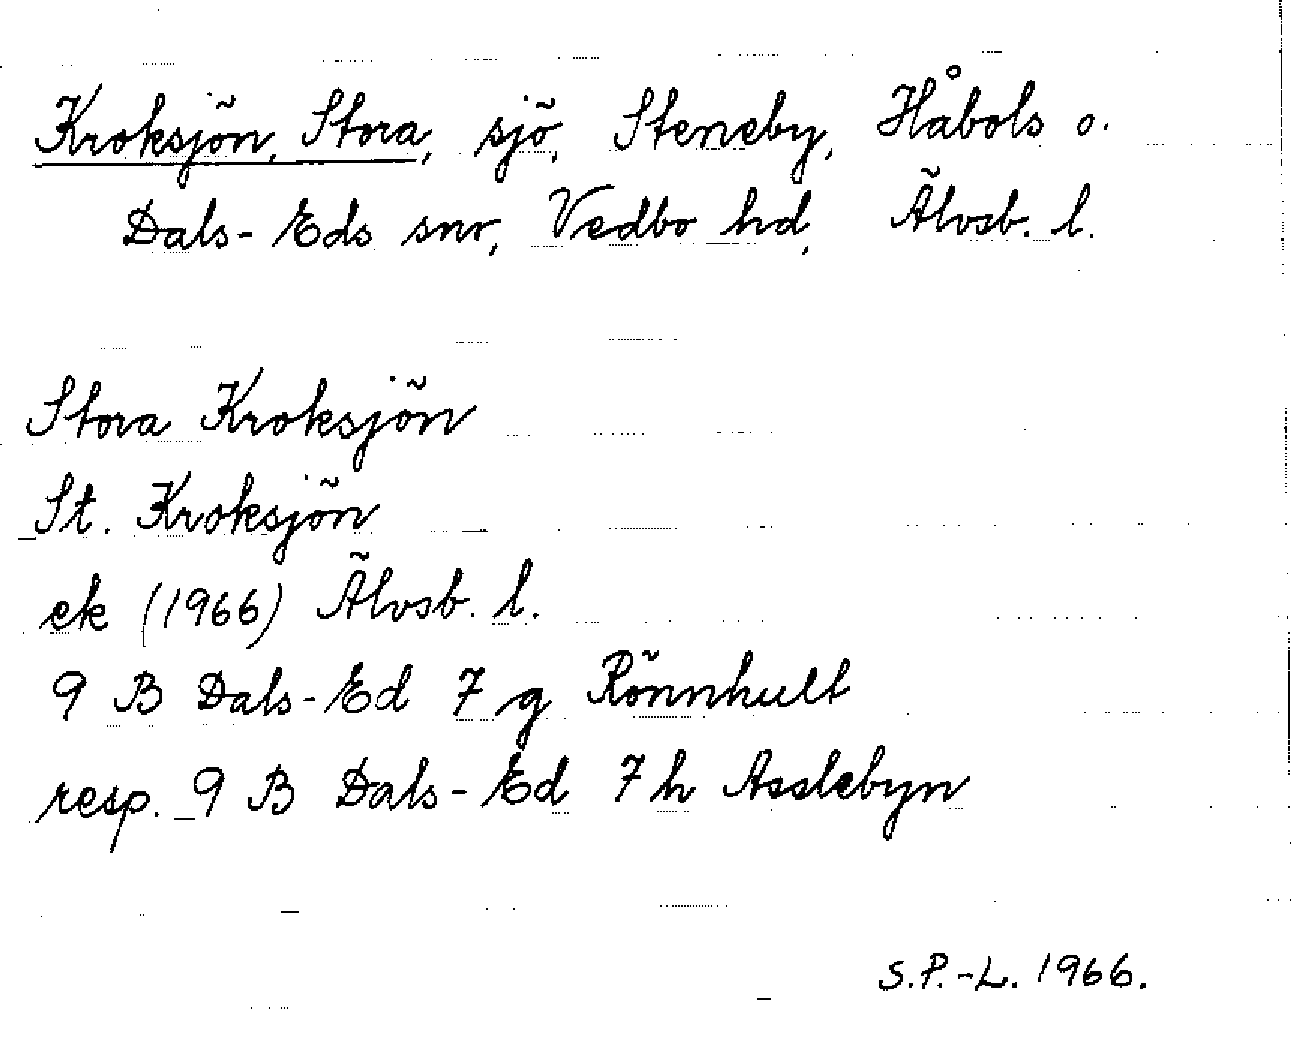 Kroksjön, Stora, sjö, Steneby, Håbols o.
Dals-Eds snr, Vedbo hd, Älvsb. l.
Stora Kroksjön
St. Kroksjön
ek (1966) Älvsb. l.
9 B Dals-Ed 7 g Rönnhult
resp. 9 B Dals-Ed 7 h Asslebyn
S.P.-L. 1966.